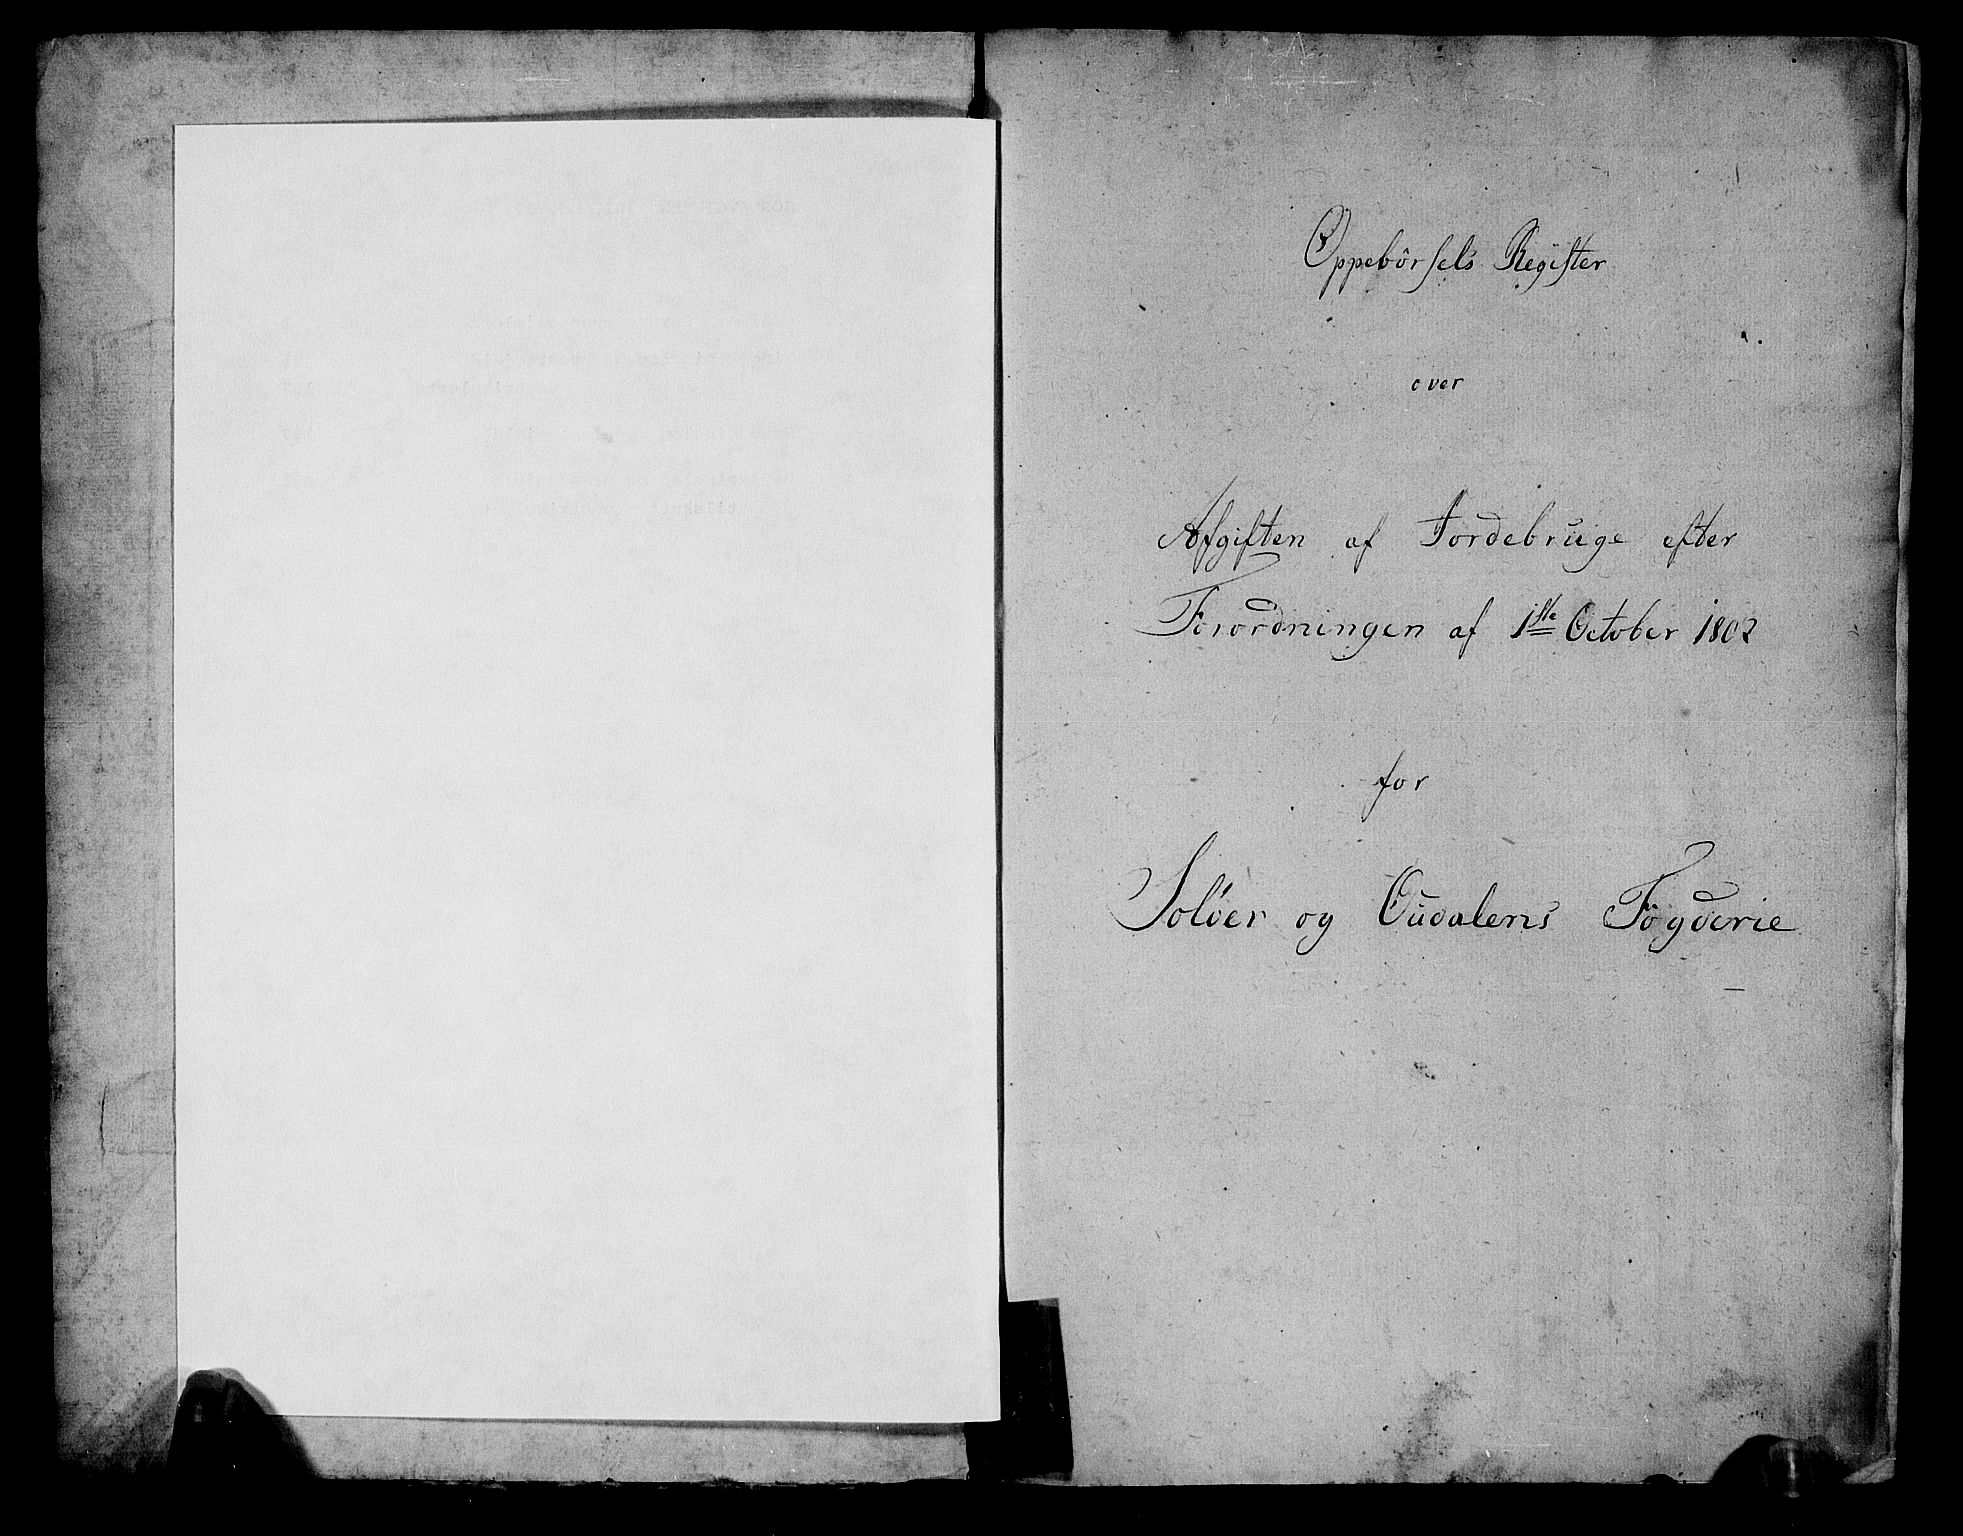 Oppebörsels Register
over
Afgiften af Jordebruge efter
Forordningen af 1ste October 1802
for
Soløer og Oudalens Fögderie